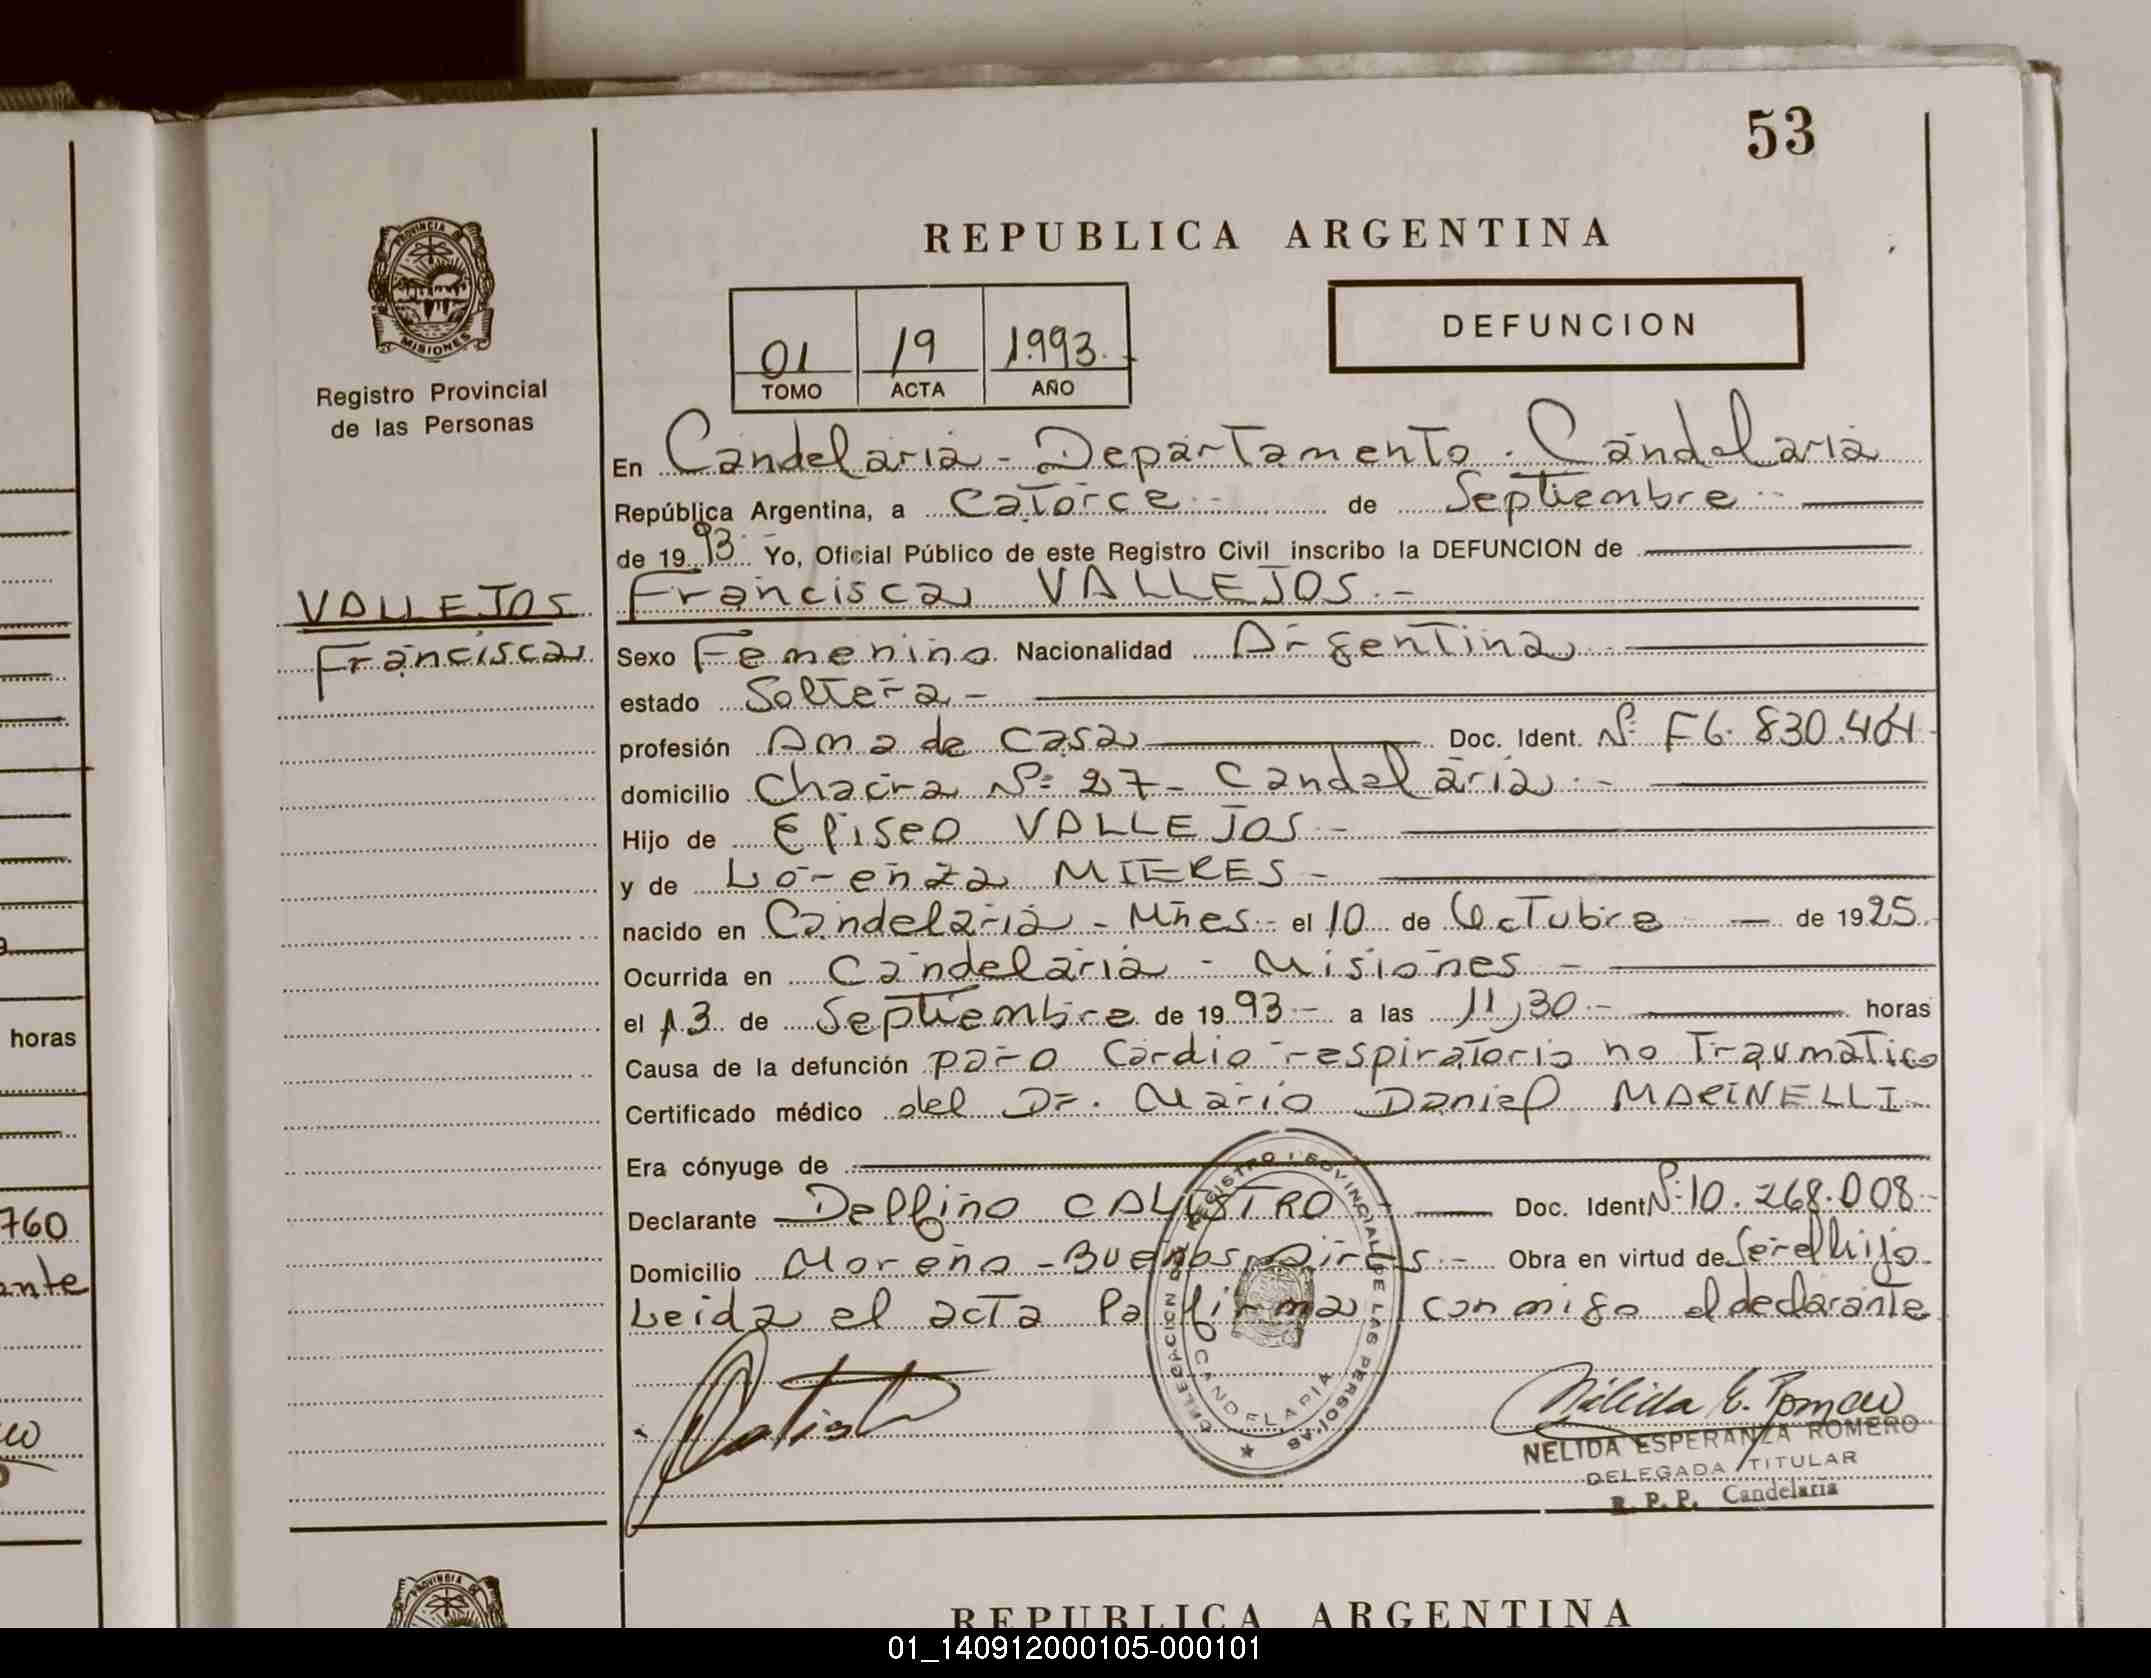 53
REPUBLICA ARGENTINA
PROVINCIA DE
MISIONES
Registro Provincial
de las Personas
01 19 1.993.
TOMO ACTA AÑO
DEFUNCION
En Candelaria - Departamento. Candelaria
República Argentina, a Catorce de Septiembre
de 19 93. Yo, Oficial Público de este Registro Civil inscribo la DEFUNCION de
VALLEJOS
Francisca VALLEJOS.-
Francisca
Sexo Femenino Nacionalidad Argentina
estado Soltera -
profesión Ama de casa Doc. Ident. Nº F6.830.404-
domicilio Chacra Nº 27 - Candelaria.-
Hijo de Eliseo VALLEJOS -
y de Lorenza MIERES -
nacido en Candelaria - Mnes.- el 10 de Octubre de 1925.
Ocurrida en Candelaria - Misiones -
el 13 de Septiembre de 1993- a las 11,30.- horas
Causa de la defunción paro cardio respiratorio no Traumático
Certificado médico del Dr. Mario Daniel MARINELLI.
Era cónyuge de
Declarante Delfino Doc. Ident Nº 10.268.008-
Domicilio Moreno - Buenos Aires.- Obra en virtud de Ser el hijo.
Leida el acta la firma conmigo el declarante
DELEGACION DEL REGISTRO PROVINCIAL DE LAS PERSONAS
CANDELARIA
Nélida E. Romero
NELIDA ESPERANZA ROMERO
DELEGADA TITULAR
R. P. P. Candelaria
horas
760
ante
PROVINCIA
REPUBLICA ARGENTINA
01_140912000105-000101